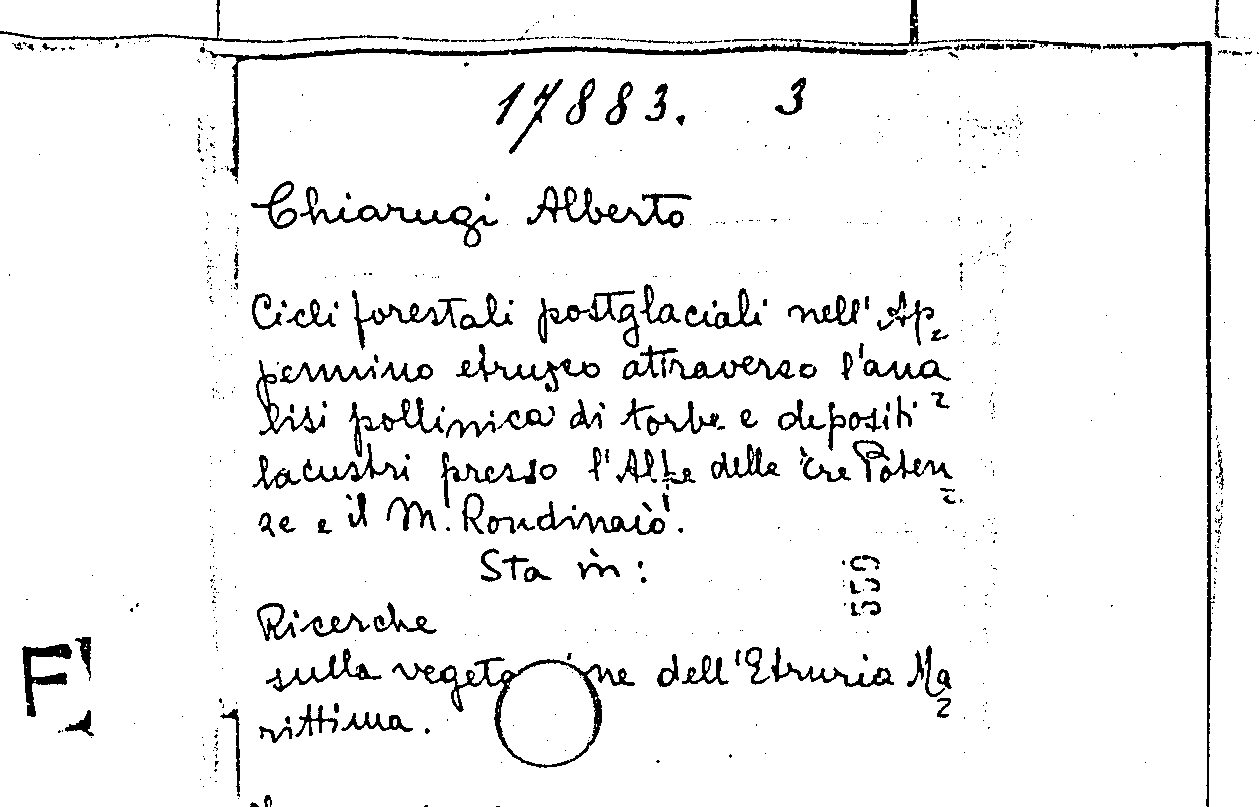 17883. 3
Chiarugi Alberto
Cicli forestali postglaciali nell'Ap=
pennino etrusco attraverso l'ana=
lisi pollinica di torbe e depositi
lacustri presso l'Alpe delle Tre Poten=
ze e il M. Rondinaio.
Sta in:
559
Ricerche
sulla vegeta ne dell'Etruria Ma=
rittima.
F